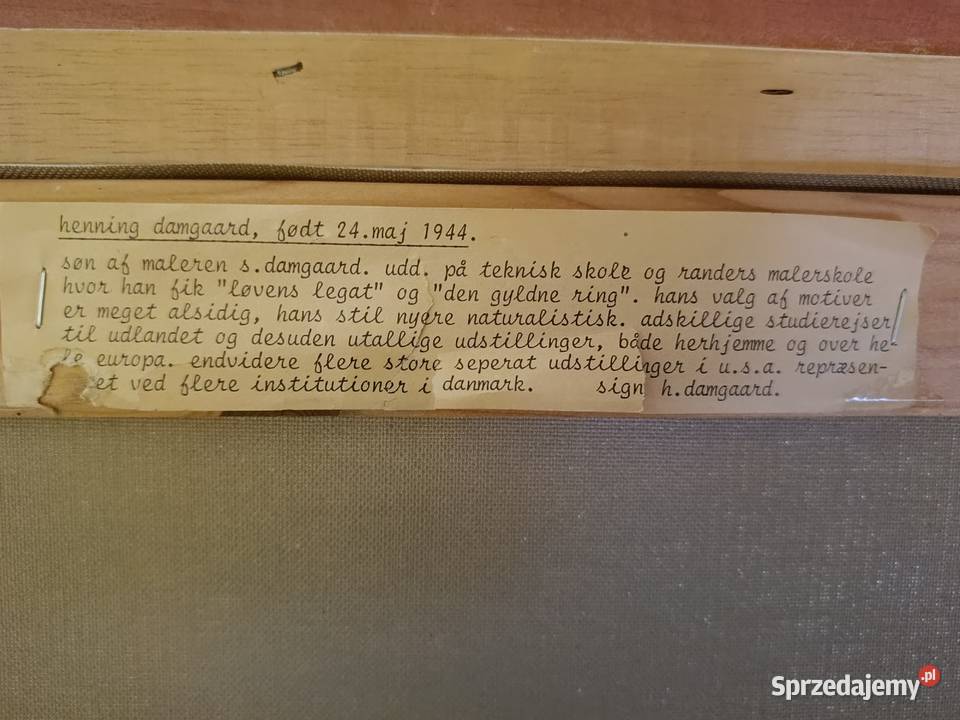 henning damgaard, født 24.maj 1944.
søn af maleren s.damgaard. udd. på teknisk skole og randers malerskole
hvor han fik "løvens legat" og "den gyldne ring". hans valg af motiver
er meget alsidig, hans stil nyere naturalistisk. adskillige studierejser
til udlandet og desuden utallige udstillinger, både herhjemme og over he-
europa. endvidere flere store seperat udstillinger i u.s.a. repræsen-
et ved flere institutioner i danmark. sign h.damgaard.
Sprzedajemy.pl